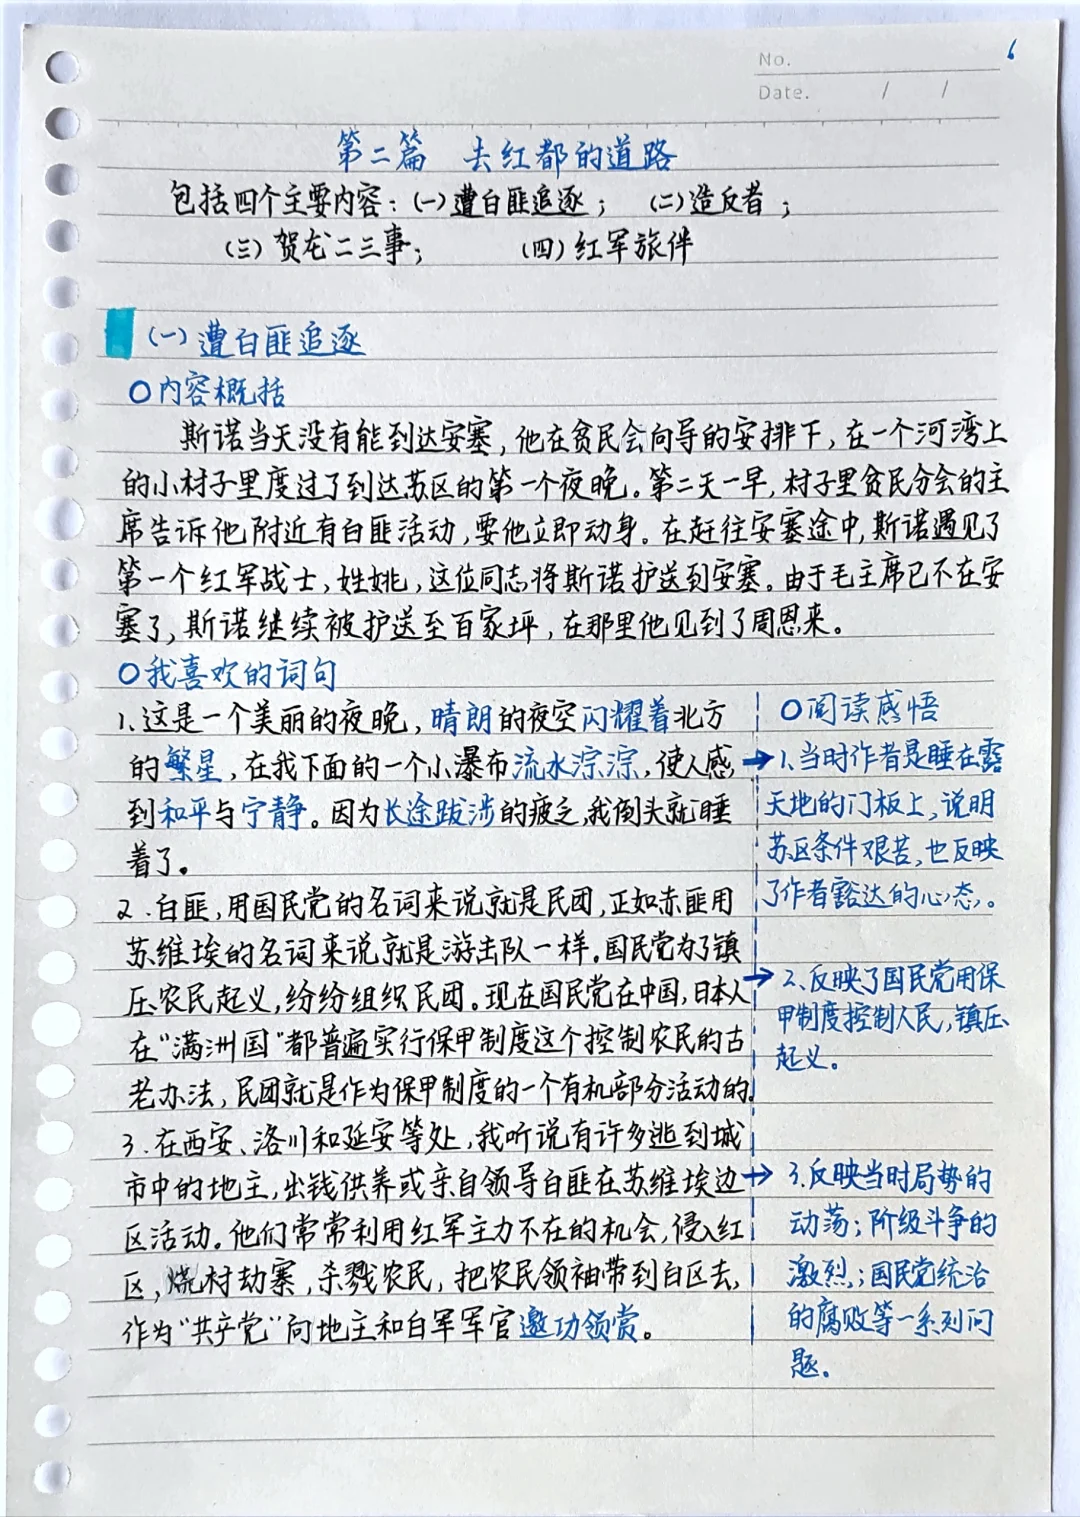 6
No.
Date. / /
第二篇 去红都的道路
包括四个主要内容：(一)遭白匪追逐； (二)造反者；
(三)贺龙二三事； (四)红军旅伴
(一)遭白匪追逐
○内容概括
斯诺当天没有能到达安塞，他在贫民会向导的安排下，在一个河湾上
的小村子里度过了到达苏区的第一个夜晚。第二天一早，村子里贫民分会的主
席告诉他附近有白匪活动，要他立即动身。在赶往安塞途中，斯诺遇见了
第一个红军战士，姓姚，这位同志将斯诺护送到安塞。由于毛主席已不在安
塞了，斯诺继续被护送至百家坪，在那里他见到了周恩来。
○我喜欢的词句
1、这是一个美丽的夜晚，晴朗的夜空闪耀着北方
的繁星，在我下面的一个小瀑布流水淙淙，使人感
到和平与宁静。因为长途跋涉的疲乏，我倒头就睡
着了。
2、白匪，用国民党的名词来说就是民团，正如赤匪用
苏维埃的名词来说就是游击队一样。国民党为了镇
压农民起义，纷纷组织民团。现在国民党在中国，日本人
在“满洲国”都普遍实行保甲制度这个控制农民的古
老办法，民团就是作为保甲制度的一个有机部分活动的。
3、在西安、洛川和延安等处，我听说有许多逃到城
市中的地主，出钱供养或亲自领导白匪在苏维埃边
区活动。他们常常利用红军主力不在的机会，侵入红
区，烧村劫寨，杀戮农民，把农民领袖带到白区去，
作为“共产党”向地主和白军军官邀功领赏。
○阅读感悟
1、当时作者是睡在露
天地的门板上，说明
苏区条件艰苦，也反映
了作者豁达的心态。
2、反映了国民党用保
甲制度控制人民，镇压
起义。
3、反映当时局势的
动荡；阶级斗争的
激烈；国民党统治
的腐败等一系列问
题。